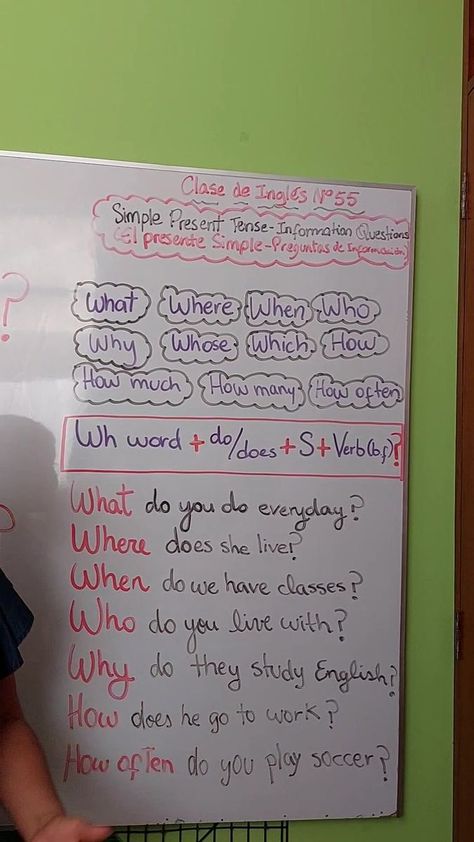 Clase de Inglés Nº 55
Simple Present Tense-Information Questions
(El presente Simple-Preguntas de Información)
What Where When Who
Why Whose Which How
How much How many How often
Wh word + do/does + S + Verb(b.f)?
What do you do everyday?
Where does she live?
When do we have classes?
Who do you live with?
Why do they study English?
How does he go to work?
How often do you play soccer?
?